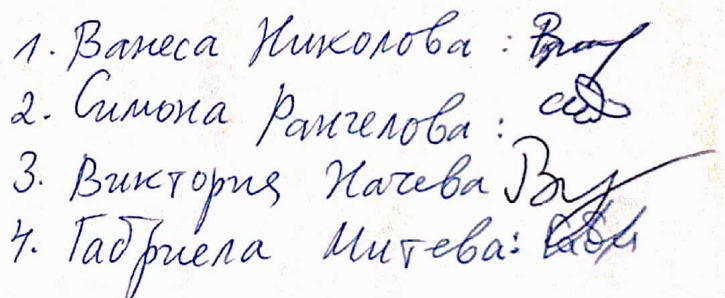 1. Ванеса Николова :
2. Симона Рангелова :
3. Виктория Начева
4. Габриела Митева :